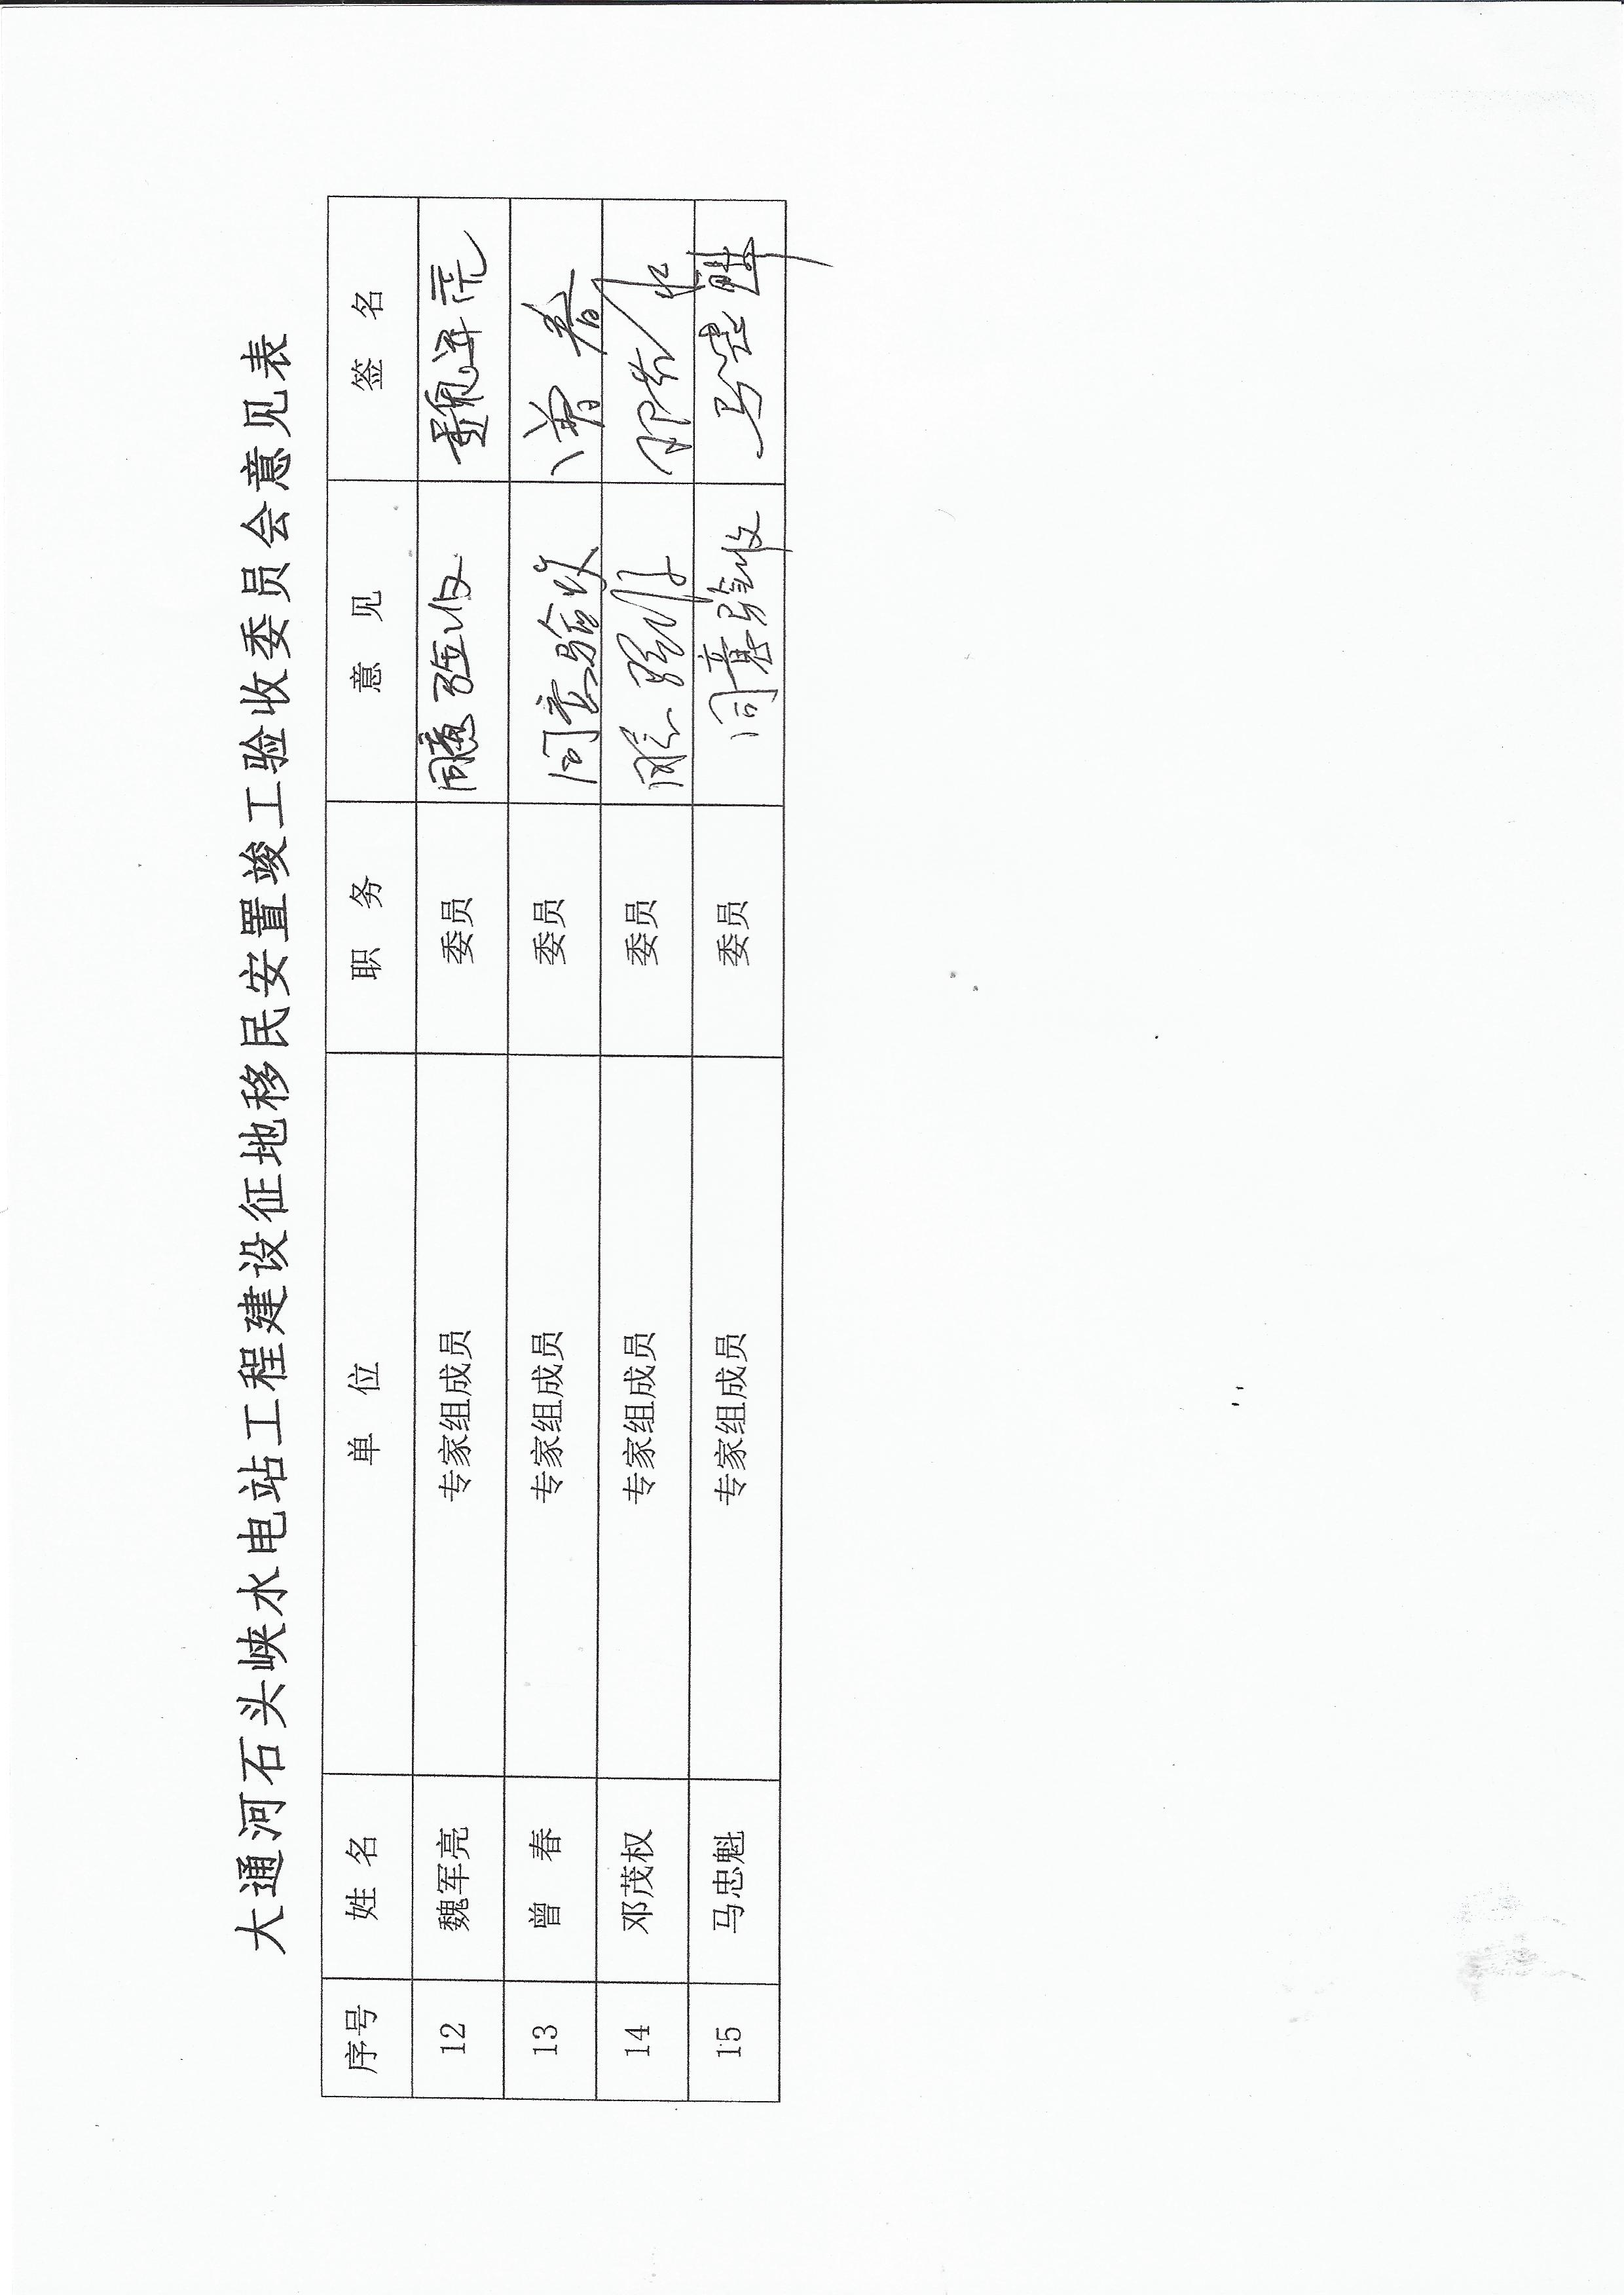 大通河石头峡水电站工程建设征地移民安置竣工验收委员会意见表
序号 姓名 单位 职务 意见 签名
12 魏军亮 专家组成员 委员 同意验收 魏军亮
13 曾春 专家组成员 委员 同意验收 曾春
14 邓茂权 专家组成员 委员 同意验收 邓茂权
15 马忠魁 专家组成员 委员 同意验收 马忠魁